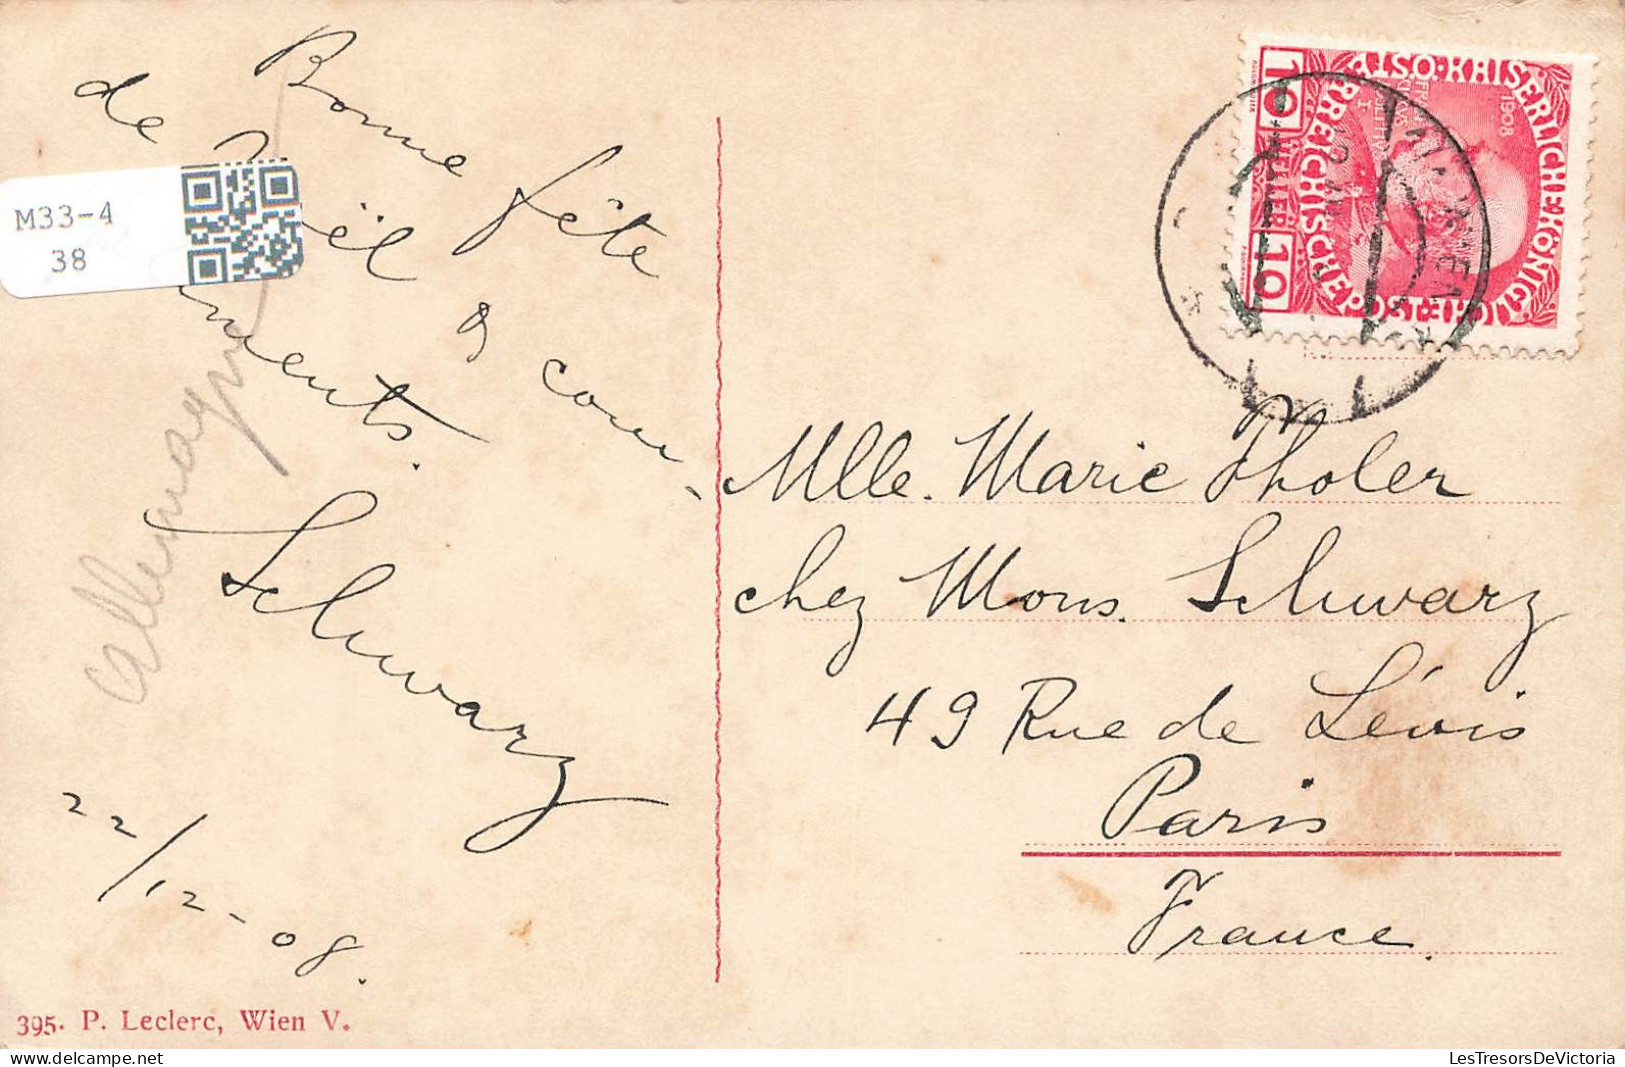 Bonne fête
de Noël & com-
ments.
Schwarz
22/12-08.
allemagne
M33-4
38
395. P. Leclerc, Wien V.
KAISERLICHE KÖNIGLICHE
ÖSTERREICHISCHE POST
1908
10 HELLER 10
WIEN
Mlle. Marie Tholer
chez Mons. Schwarz
49 Rue de Lévis
Paris
France.
LesTresorsDeVictoria